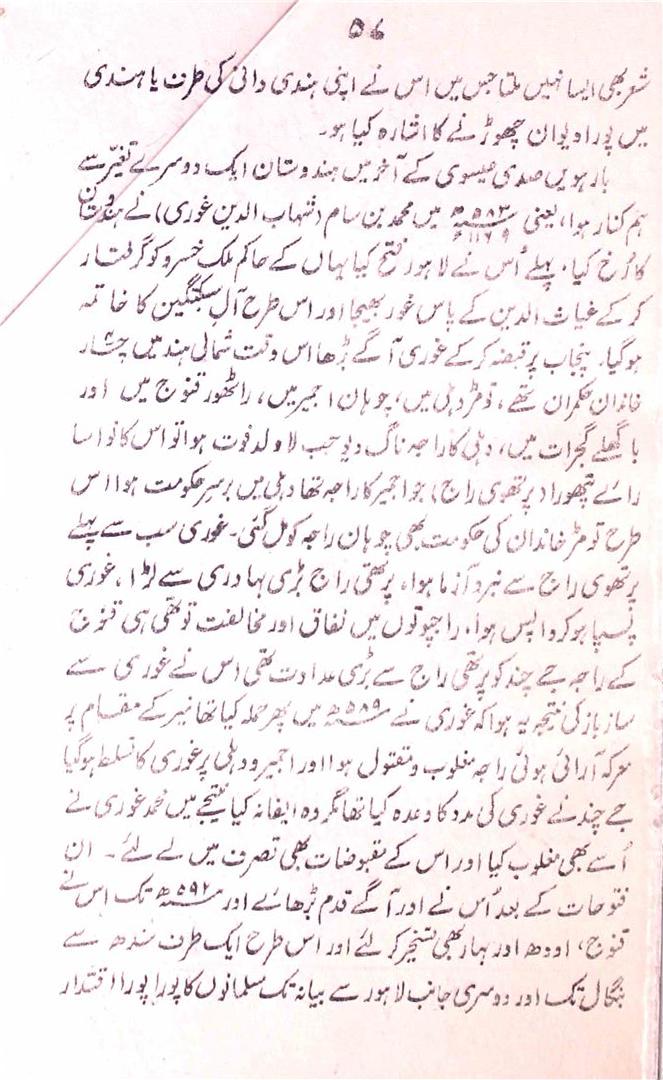 ۵۶
شعر بھی ایسا نہیں ملتا جس میں اس نے اپنی ہندی دانی کی طرف یا ہندی
میں پورا دیوان چھوڑنے کا اشارہ کیا ہو۔
بارہویں صدی عیسوی کے آخر میں ہندوستان ایک دوسرے تغیّر سے
ہم کنار ہوا، یعنی ۵۸۳ھ ۱۱۶۹ء میں محمد بن سام (شہاب الدین غوری) نے ہندوستان
کا رُخ کیا۔ پہلے اُس نے لاہور فتح کیا یہاں کے حاکم ملک خسرو کو گرفتار
کر کے غیاث الدین کے پاس غور بھیجا اور اس طرح آلِ سبکتگین کا خاتمہ
ہوگیا۔ پنجاب پر قبضہ کر کے غوری آگے بڑھا اس وقت شمالی ہند میں چار
خاندان حکمران تھے، تومڑ دہلی میں، چوہان اجمیر میں، راٹھور قنوج میں اور
باگھلے گجرات میں، دہلی کا راجہ ناگ دیو جب لاولد فوت ہوا تو اس کا نواسا
رائے پتھورا (پرتھوی راج) جو اجمیر کا راجہ تھا دہلی میں برسرِ حکومت ہوا اس
طرح تومڑ خاندان کی حکومت بھی چوہان راجہ کو مل گئی۔ غوری سب سے پہلے
پرتھوی راج سے نبرد آزما ہوا، پرتھی راج بڑی بہادری سے لڑا، غوری
پسپا ہو کر واپس ہوا، راجپوتوں میں نفاق اور مخالفت تو تھی ہی قنوج
کے راجہ جے چند کو پرتھی راج سے بڑی عداوت تھی اس نے غوری سے
ساز باز کی نتیجہ یہ ہوا کہ غوری نے ۵۸۹ھ میں پھر حملہ کیا تھانیر کے مقام پر
معرکہ آرائی ہوئی راجہ مغلوب و مقتول ہوا اور اجمیر و دہلی پر غوری کا تسلط ہوگیا
جے چند نے غوری کی مدد کا وعدہ کیا تھا مگر وہ ایفا نہ کیا نتیجے میں محمد غوری نے
اُسے بھی مغلوب کیا اور اس کے مقبوضات بھی تصرف میں لے لئے۔ ان
فتوحات کے بعد اُس نے اور آگے قدم بڑھائے اور ۵۹۲ھ تک اس نے
قنوج، اودھ اور بہار بھی تسخیر کر لئے اور اس طرح ایک طرف سندھ سے
بنگال تک اور دوسری جانب لاہور سے بیانہ تک مسلمانوں کا پورا پورا اقتدار